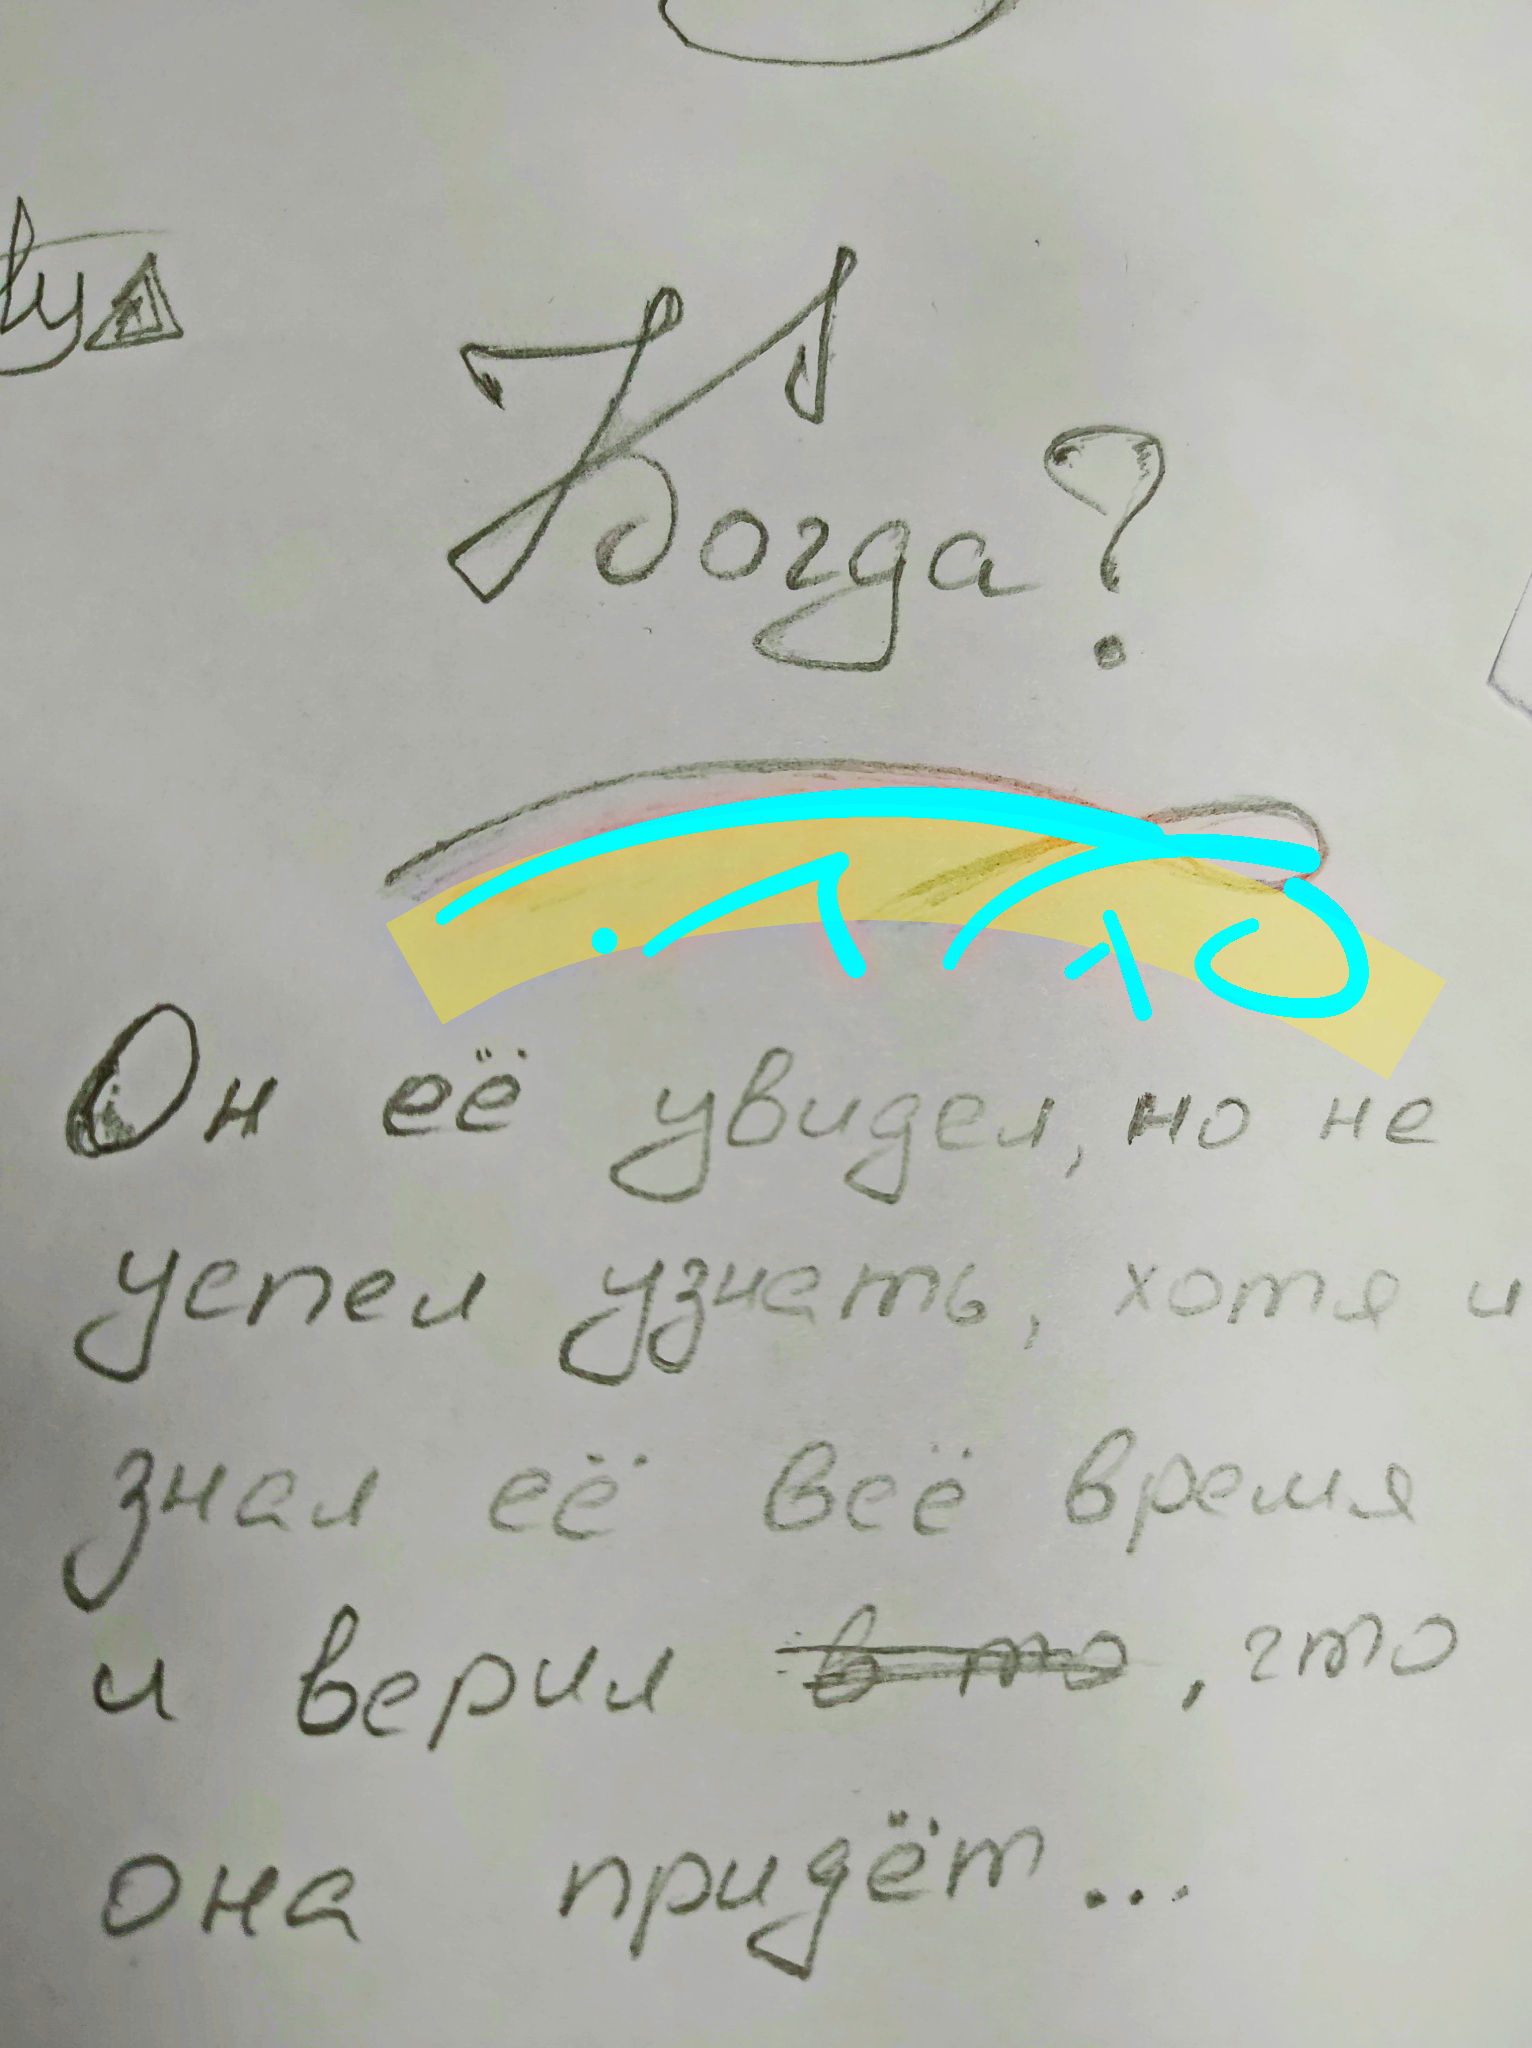 Когда?
Он её увидел, но не
успел узнать, хотя и
знал её всё время
и верил в то, что
она придёт...